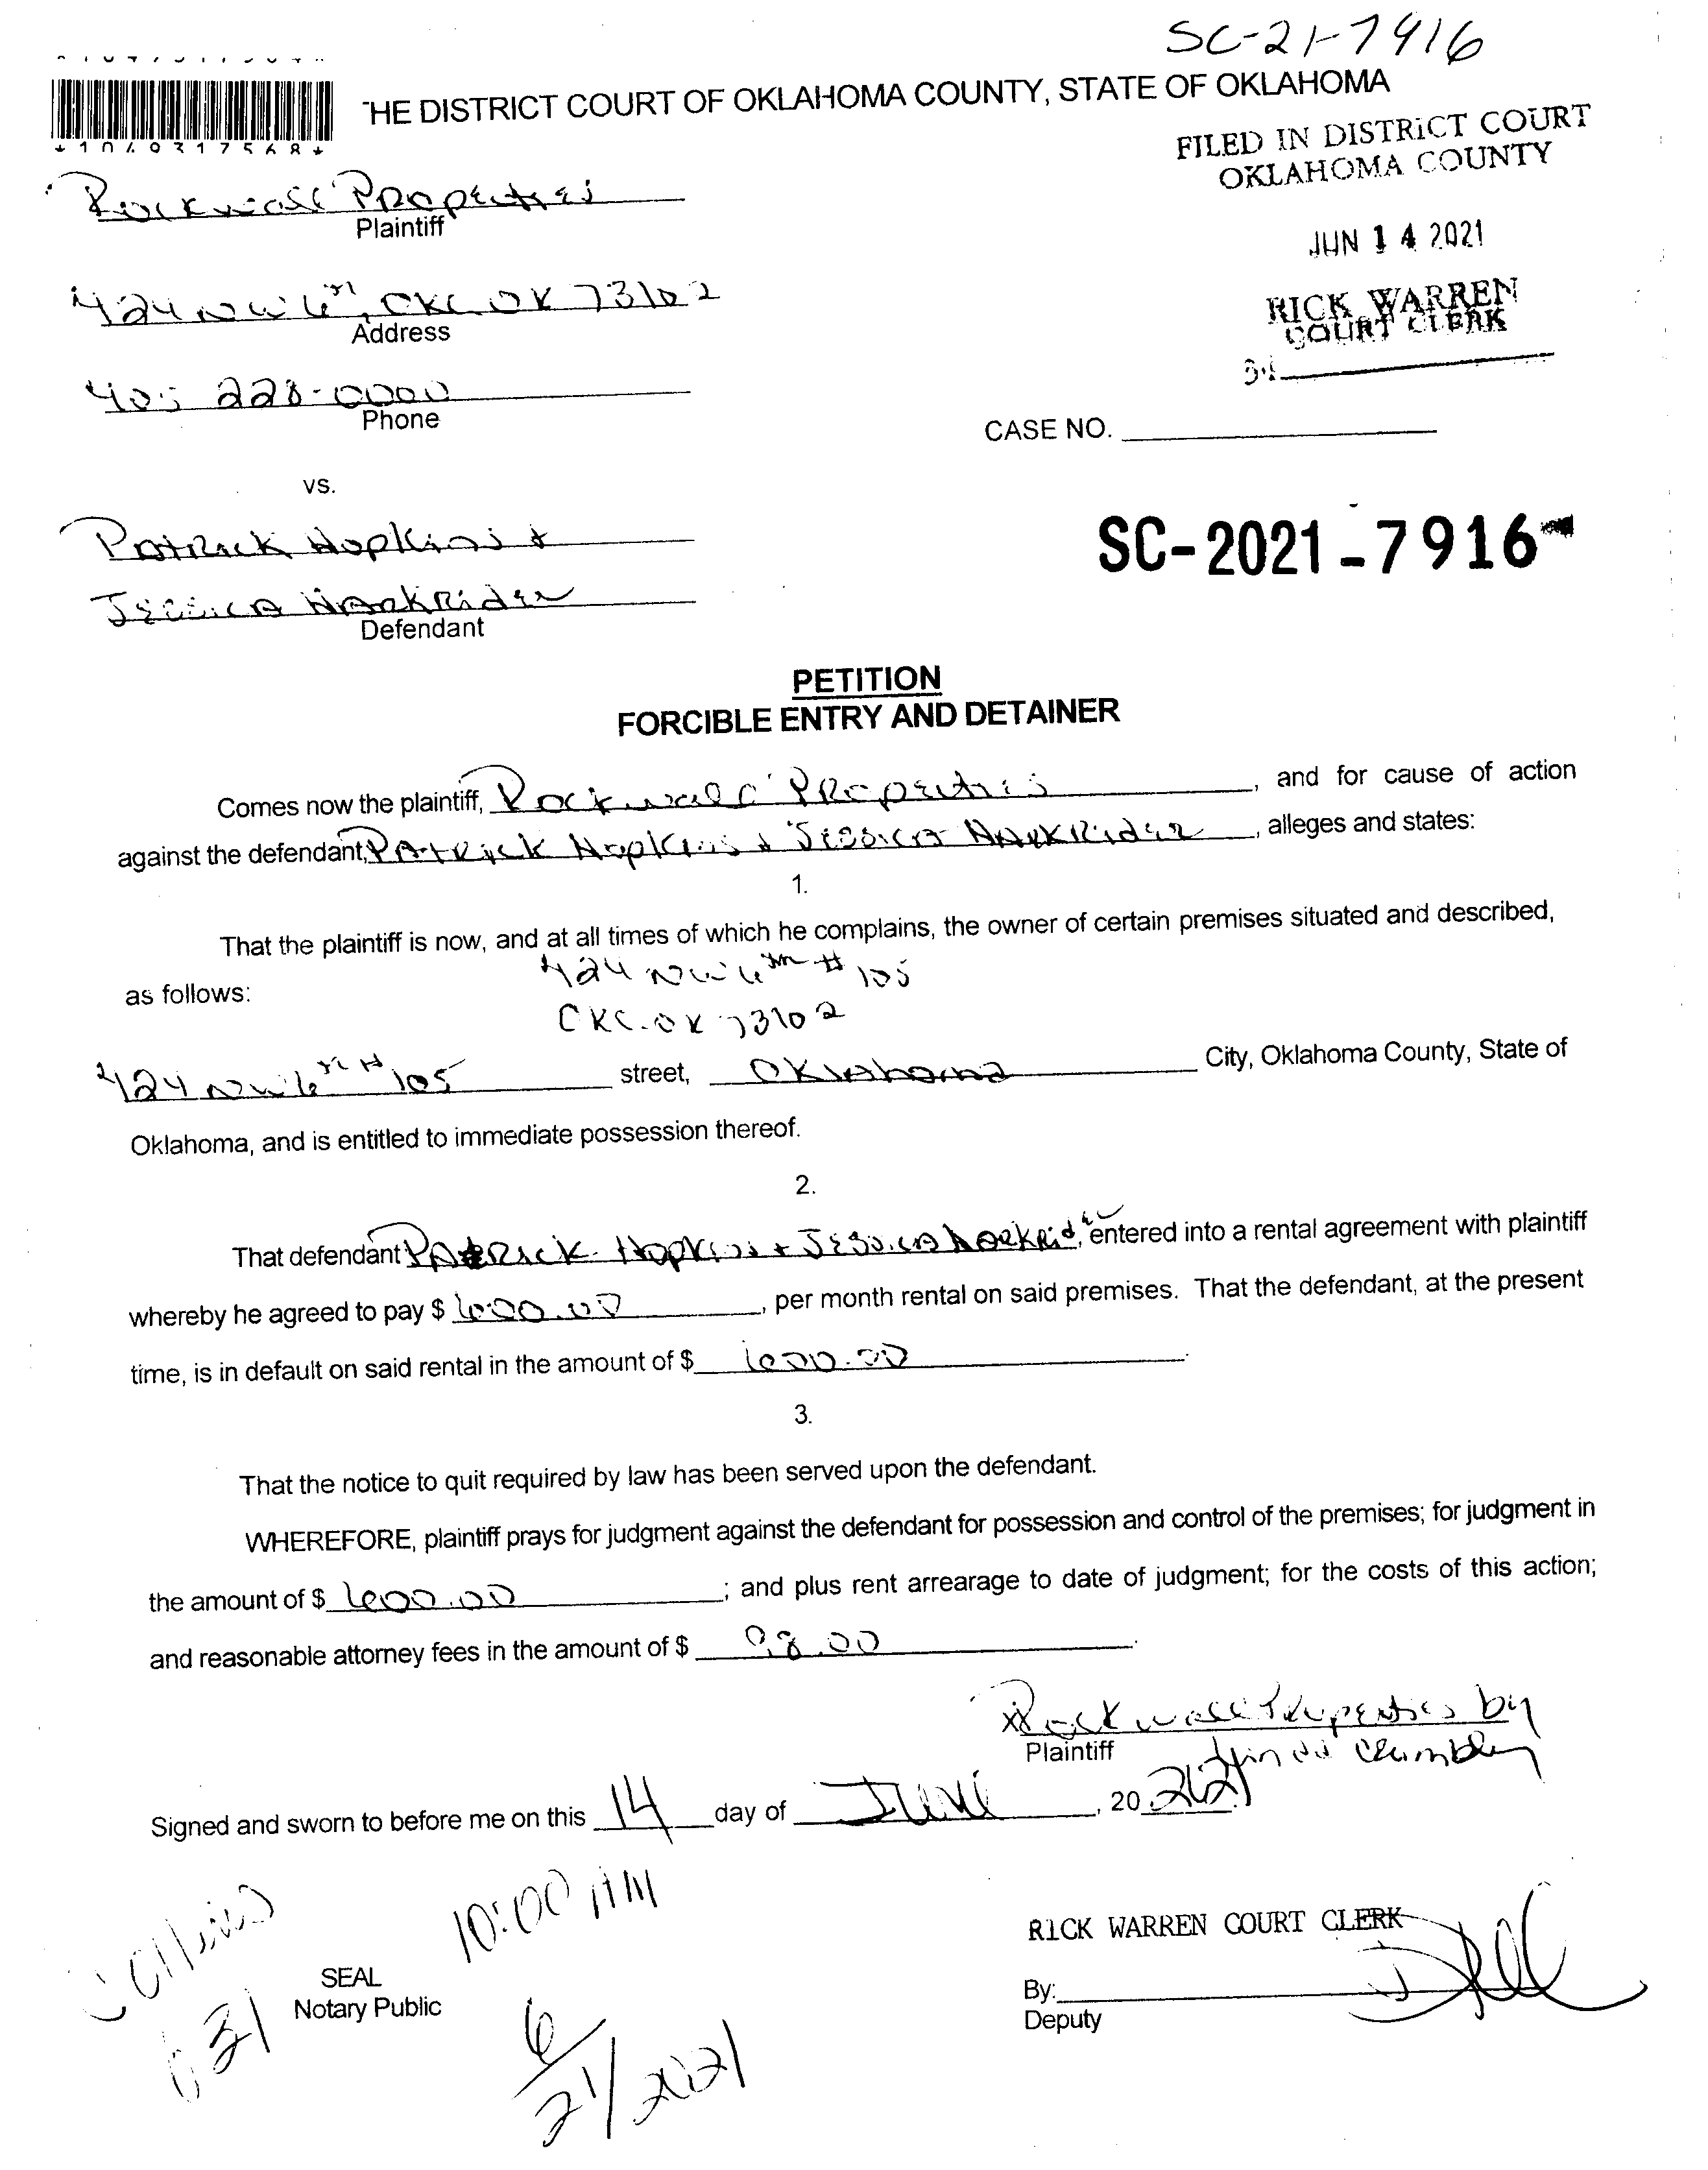 SC-21-7916
THE DISTRICT COURT OF OKLAHOMA COUNTY, STATE OF OKLAHOMA
FILED IN DISTRICT COURT
OKLAHOMA COUNTY
*1049317568*
Rockwall Properties
Plaintiff
JUN 14 2021
424 NW 6th, OKC OK 73102
Address
RICK WARREN
COURT CLERK
405 228-0000
Phone
CASE NO.
vs.
Patrick Hopkins +
SC-2021-7916
Jessica Harkrider
Defendant
PETITION
FORCIBLE ENTRY AND DETAINER
Comes now the plaintiff, Rockwall Properties, and for cause of action
against the defendant, Patrick Hopkins + Jessica Harkrider, alleges and states:
1.
That the plaintiff is now, and at all times of which he complains, the owner of certain premises situated and described,
as follows: 424 NW 6th # 105
OKC. OK 73102
424 NW 6th # 105 street, Oklahoma City, Oklahoma County, State of
Oklahoma, and is entitled to immediate possession thereof.
2.
That defendant Patrick Hopkins + Jessica Harkrider, entered into a rental agreement with plaintiff
whereby he agreed to pay $ 600.00, per month rental on said premises. That the defendant, at the present
time, is in default on said rental in the amount of $ 600.00.
3.
That the notice to quit required by law has been served upon the defendant.
WHEREFORE, plaintiff prays for judgment against the defendant for possession and control of the premises; for judgment in
the amount of $ 600.00; and plus rent arrearage to date of judgment; for the costs of this action;
and reasonable attorney fees in the amount of $ 98.00.
Rockwall Properties by
Plaintiff
Signed and sworn to before me on this 14 day of June, 20 2021
Collins
10:00 AM
RICK WARREN COURT CLERK
SEAL
Notary Public
By:
Deputy
6/21/2021